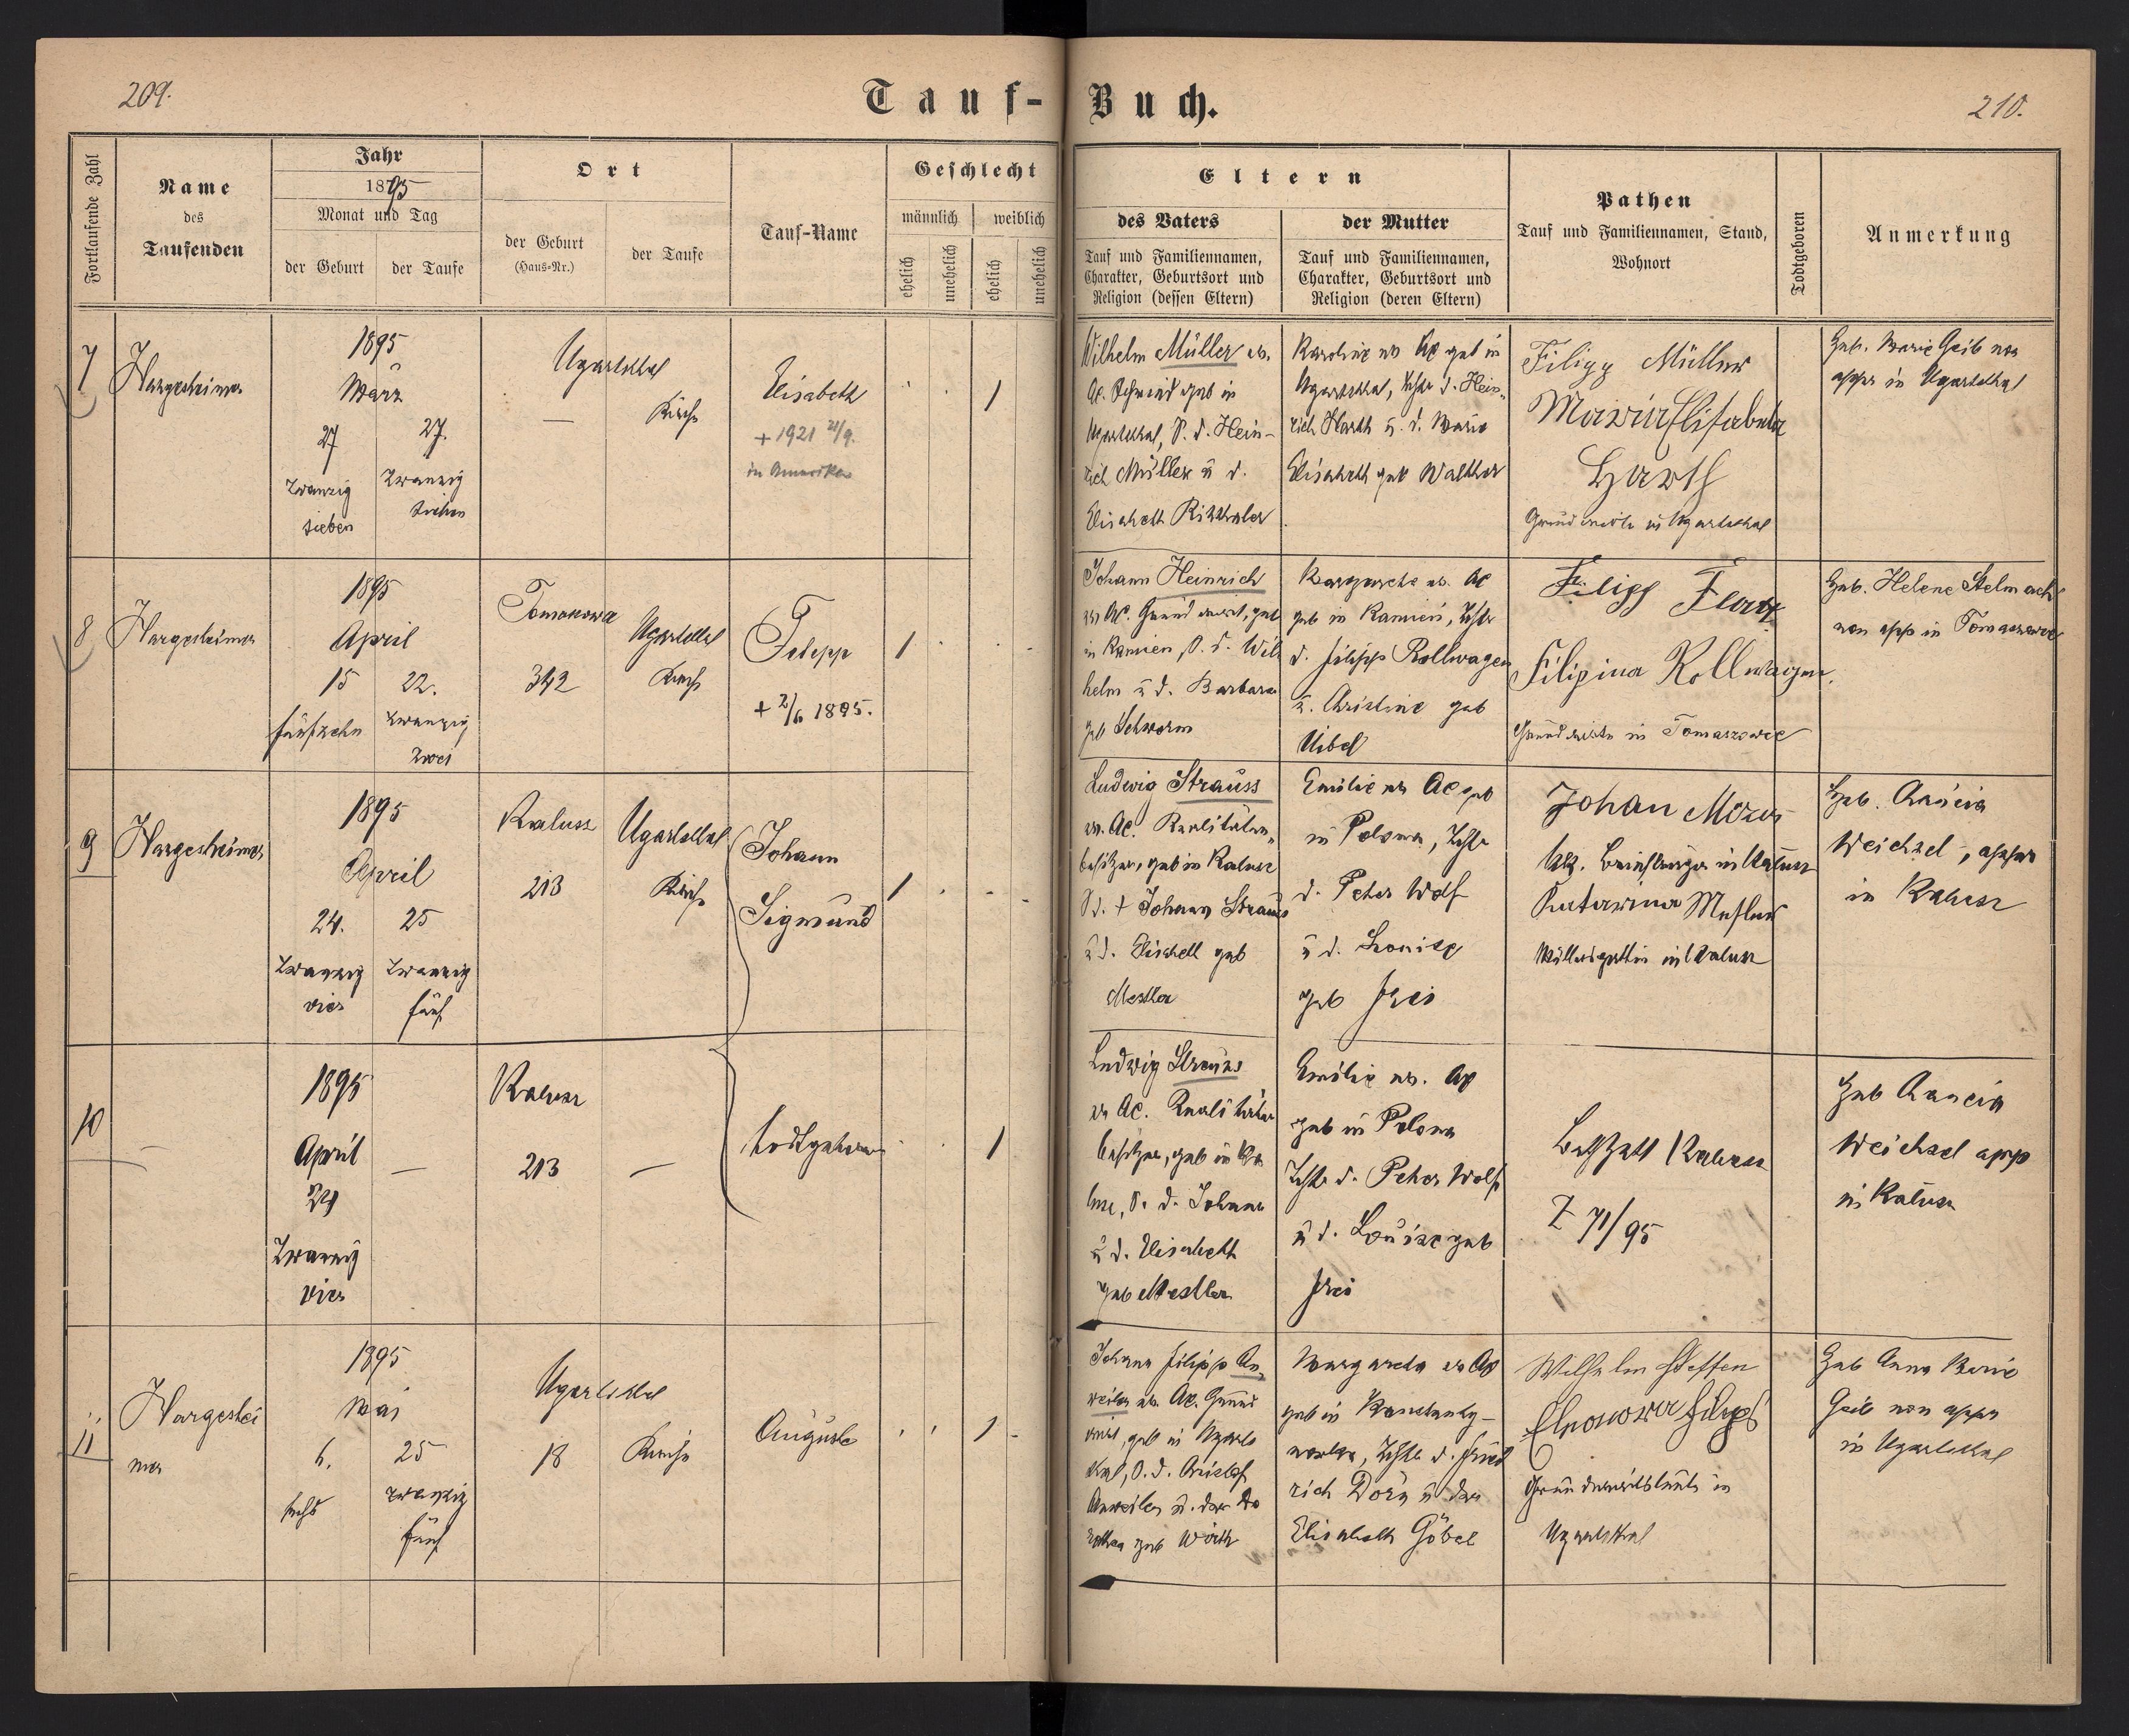 209.
Tauf-
Fortlaufende Zahl
Name
des
Taufenden
Jahr
1895
Monat und Tag
der Geburt
der Taufe
Ort
der Geburt
(Haus-Nr.)
der Taufe
Tauf-Name
Geschlecht
männlich
weiblich
ehelich
unehelich
ehelich
unehelich
7
Hargesheimer
1895
März
27
27.
Zwanzig
sieben
Zwanzig
sieben
Ugartsthal
—
Kirche
Elisabeth
+ 1921 21/9.
in Amerika
1
8
Hargesheimer
1895
April
15
22.
fünfzehn
Zwanzig
zwei
342
Ugartsthal
Kirche
+ 2/6 1895.
1
9
Hargesheimer
1895
April
24.
25
Zwanzig
vier
Zwanzig
fünf
Kalusz
213
Ugartsthal
Kirche
Johann
Sigmund
1
10
—
1895
April
24
Zwanzig
vier
—
Kalusz
213
—
todtgeboren
1
11
Hargeshei
mer
1895
Mai
6.
25
sechs
zwanzig
fünf
Ugartsthal
18
Kirche
Auguste
1
Buch.
210.
Eltern
des Vaters
Tauf und Familiennamen,
Charakter, Geburtsort und
Religion (dessen Eltern)
der Mutter
Tauf und Familiennamen,
Charakter, Geburtsort und
Religion (deren Eltern)
Pathen
Tauf und Familiennamen, Stand,
Wohnort
Todtgeboren
Anmerkung
Wilhelm Müller ev.
AC. Schmied geb in
Ugartsthal, S. d. Hein-
rich Müller u d.
Elisabeth
Karoline ev AC geb in
Ugartsthal, Tchtr d. Hein-
rich Harth u. d. Marie
Elisabeth geb Walther
Filipp Müller
Maria Elisabeta
Harth
Grundwirte in Ugartsthal
Heb. Marie Geib non
appr in Ugartsthal
Johann Heinrich
ev AC. Grundwirt, geb
in Kamien, S. d. Wil
helm u d. Barbara
geb Schworm
Margarete ev. AC
geb in Kamien, Tchtr
d. Filipp Rollwagen
u. Christine geb
Uibel
Filipp
Filipina Rollwagen.
Grundwirte in Tomaszowce
Heb. Helene Stelmach
non app in Tomaszowce
Ludwig Strauss
ev. AC. Realitäten-
besitzer, geb in Kalusz
S d. + Johann Strauss
u d. Elisabeth geb
Mestler
Emilie ev AC geb
in Polowa, Tchtr
d. Peter Wolf
u d. Louise
geb Frei
Johan
in Kalusz
Katarina
Müllersgattin in Kalusz
Heb.
Weichsel, appr
in Kalusz
Ludwig Strauss
ev AC. Realitäten
besitzer, geb in Ka
lusz, S. d. Johann
u d. Elisabeth
geb Mestler
Emilie ev. AC
geb in Polowa
Tchtr d. Peter Wolf
u d. Louise geb
Frei
Kalusz
Z 71/95
Heb
Weichsel app
in Kalusz
Johann Filipp An
weiler ev. AC. Grund
wirt, geb in Ugarts
thal, S. d. Christof
Anweiler u. der Do
rothea geb Wirth
Margareta ev AC
geb in Konstanty-
nowka, Tchtr d. Fried
rich Dorn u der
Elisabeth Göbel
Wilhelm Steffen
Grundwirtsleute in
Ugartsthal
Heb Anna Marie
Geib non appr
in Ugartsthal